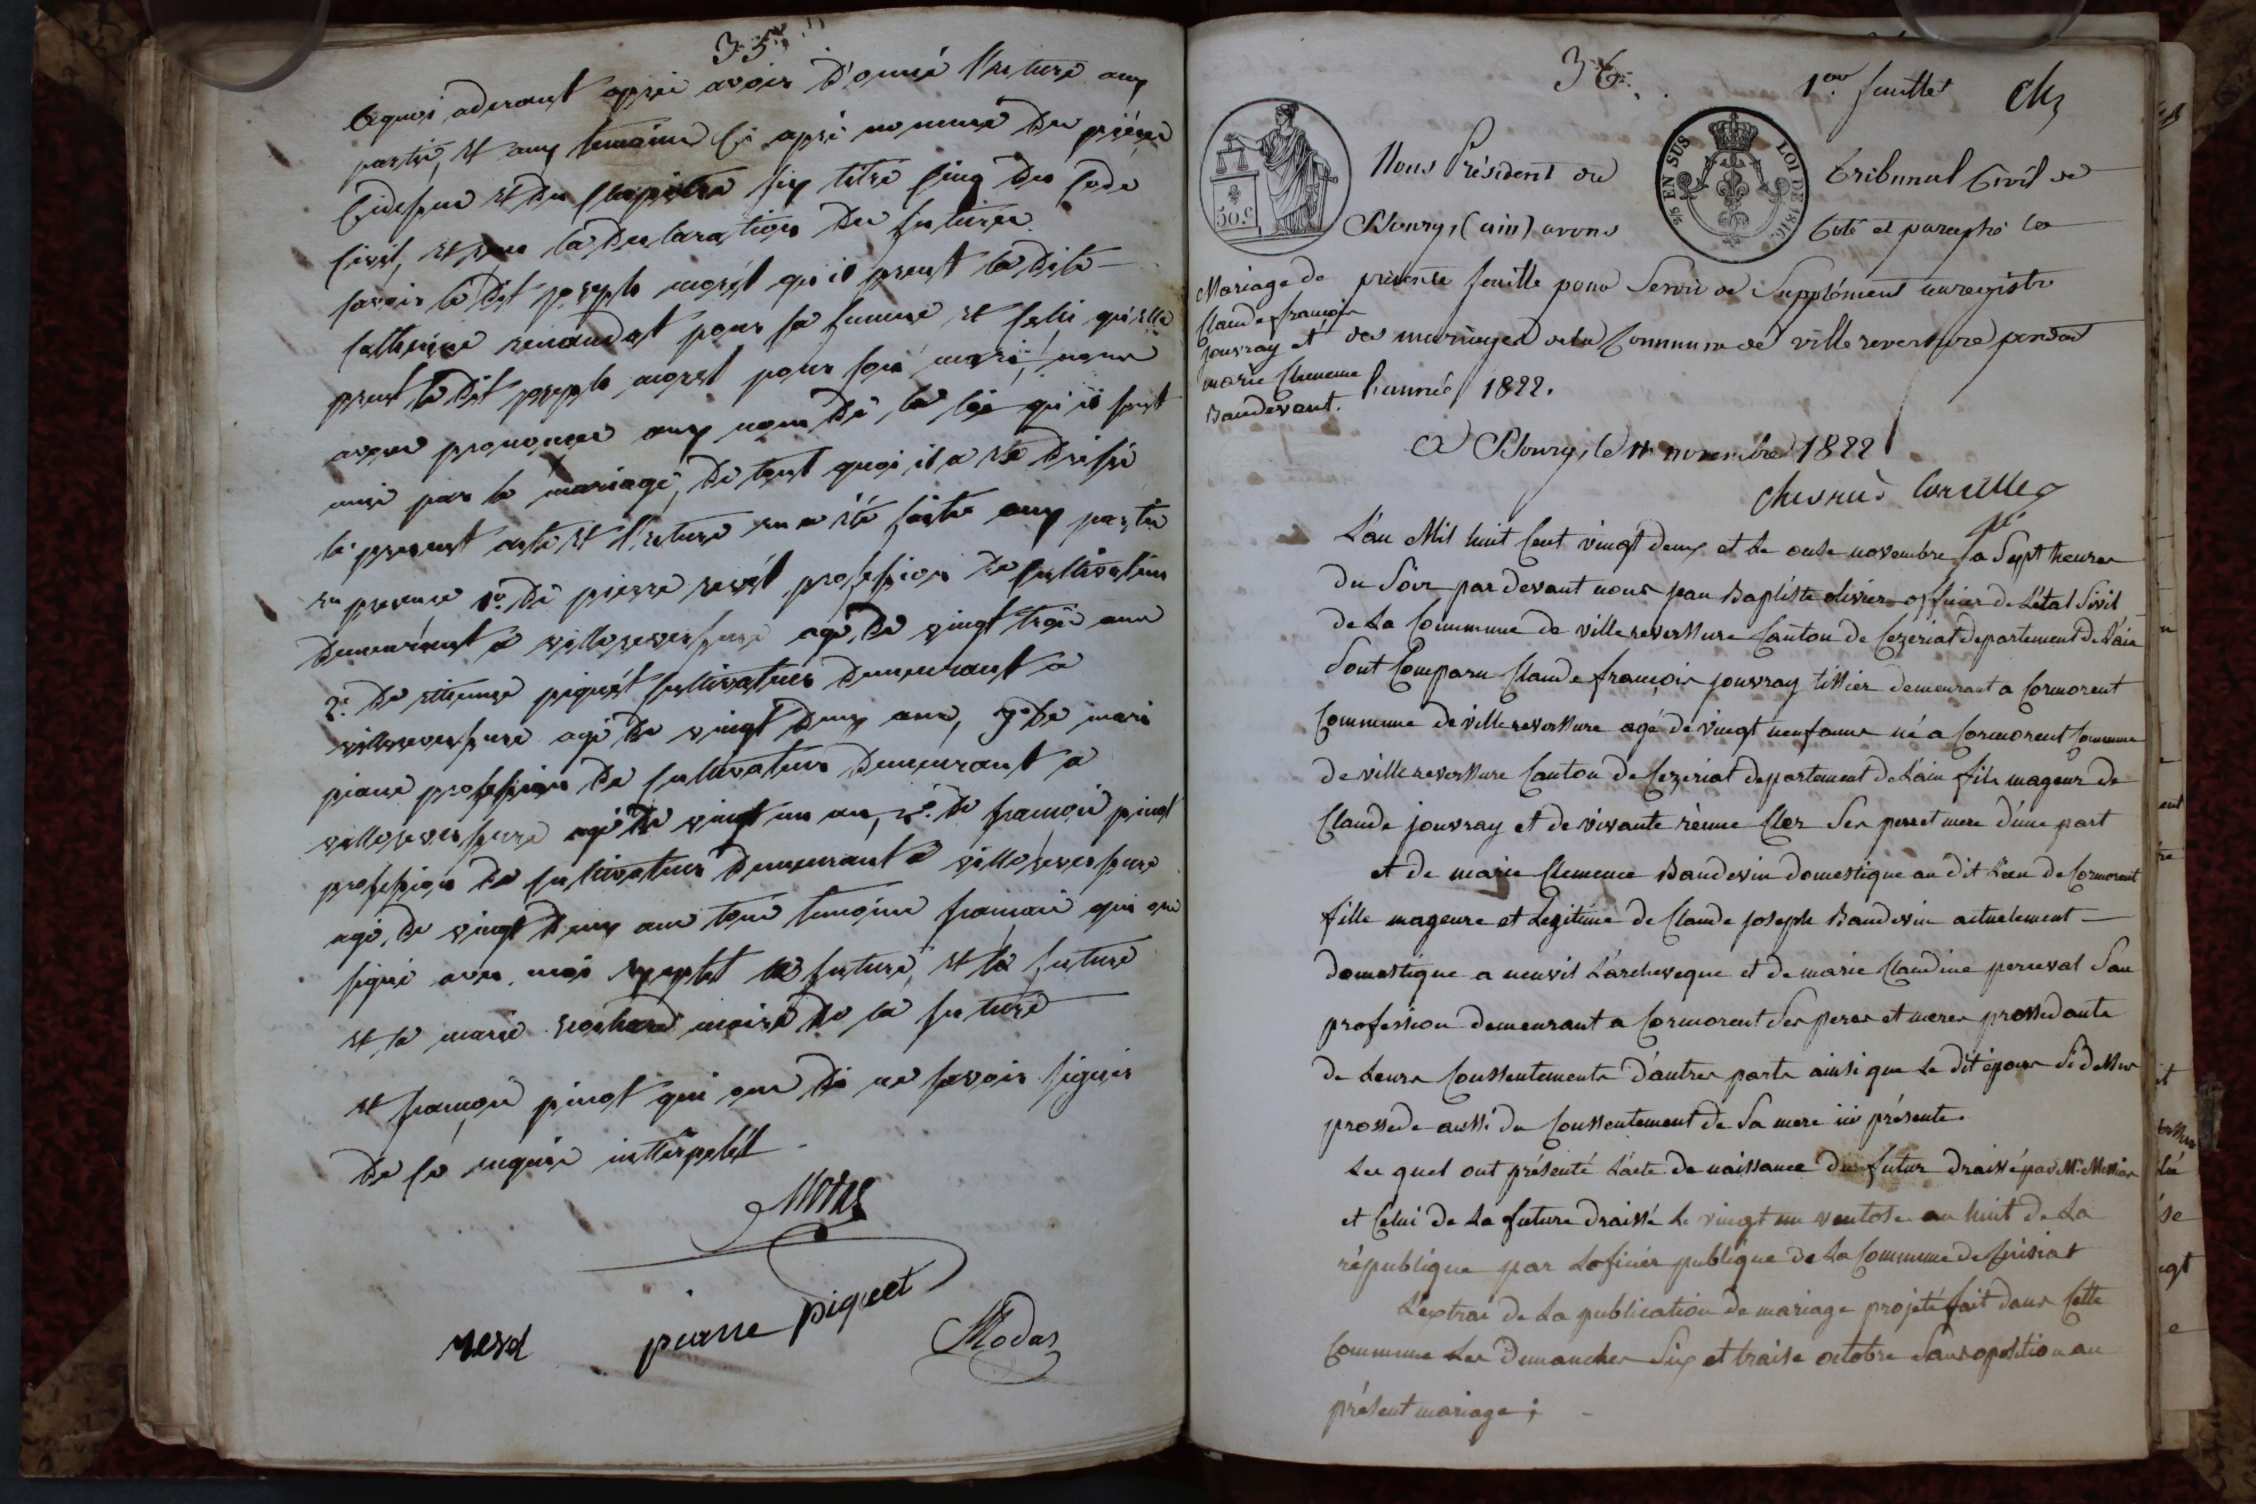 35
aquoi aderant aprè avoir d'onné l'ecture aux
partie, et aux temoins ci aprè nommé des pièces
cidessus et du chapitre six titre cinq du code
civil, et sur la declaration des futures
savoir le dit joseph morêt qu'il prent la dite
catherine renaudat pour sa femme et celle qu'elle
prent le dit joseph morêt pour son mari, nous
avons prononcer aux nom de la loi qu'il sont
unie par le mariage, de tout quoi, il a été dressé
le present acte et l'ecture en a été faite aux partie
en presence 1º. de pierre revêt profession de cultivateur
demeurant a villereversure agé, de vingt trois ans
2º de etienne piquét cultivateur demeurant a
villereversure agé de vingt deux ans, 3º de mari
piane profession de cultivateur demeurant a
villereversure agé de vingt un an, 4º. de françois pinot
profession de cultivateur demeurant a villereversure
agé, de vingt deux ans tous temoins français qui ont
signé avec moi excepté le future, et la future
et la marie mére de la future
et françois pinot qui ont di ne savoir signer
de ce requis interpelét
Modas
revel pierre piquet Modas
36
1er. feuillet Chz
Nous Président du Tribunal Civil de
Bourg, (ain) avons Coté et paraphé la
EN SUS LOI DE 1816.
50.c
présente feuille pour Servir de Supplément au registre
des mariages de la Commune de villereversure pendant
l'année 1822.
Mariage de
Claude françois
jouvray et
marie Clemence
Baudevant.
A Bourg, le 11 novembre 1822
Chevrier Corcelle
pt
L'an Mil huit Cent vingt deux et le onse novembre a Sept heures
du Soir par devant nous jean Baptiste olivier officier de L'état Sivil
de La Commune de villereverssure Canton de Cezeriat departement de L'ain
Sont Comparu Claude françois jouvray tissier demeurant a Cormorent
Commune de villereverssure agé de vingt neuf anns né a Cormorent Commune
de villereverssure Canton de Cezeriat departement de L'ain fils mageur de
Claude jouvray et de vivante rènne Cler Ses per et mere d'une part
et de marie Clemence Baudevin domestique au dit Lieu de Cormorent
fille mageure et Legitime de Claude joseph Baudevin actuelement
domestique a neuvil L'archeveque et de marie Claudine perceval San
profession demeurant a Cormorent Ses peres et meres prossedants
de Leurs Conssentements d'autres parts ainsi que Le dit époux Si dessus
prossede aussi du Conssentement de Sa mere ici présente.
Les quel ont présenté L'acte de naissance du futur draissé par Mr. Messiar
et Celui de La future draissé Le vingt un ventose an huit de La
république par Loficier publique de La Commune de Cuisiat
L'extrai de La publication de mariage projeté fait dans Cette
Commune Les Dimanches Six et traise octobre Sans oposition au
présent mariage ;